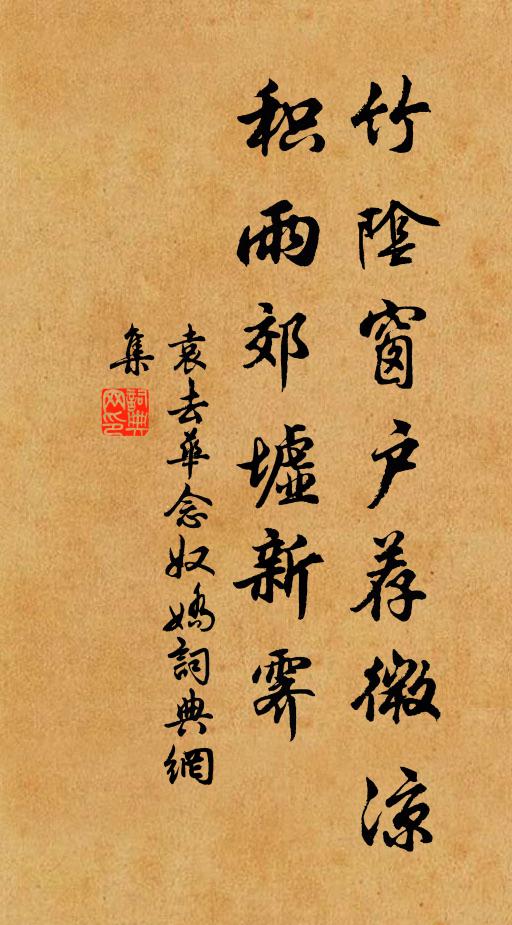 竹陰窗户荐微涼
积雨郊墟新霽
袁去華念奴嬌詞典網
集
詞典網印